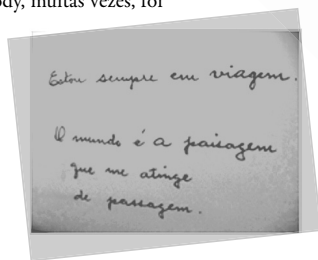 ody, muitas vezes, foi
Estou sempre em viagem.
O mundo é a paisagem
que me atinge
de passagem.